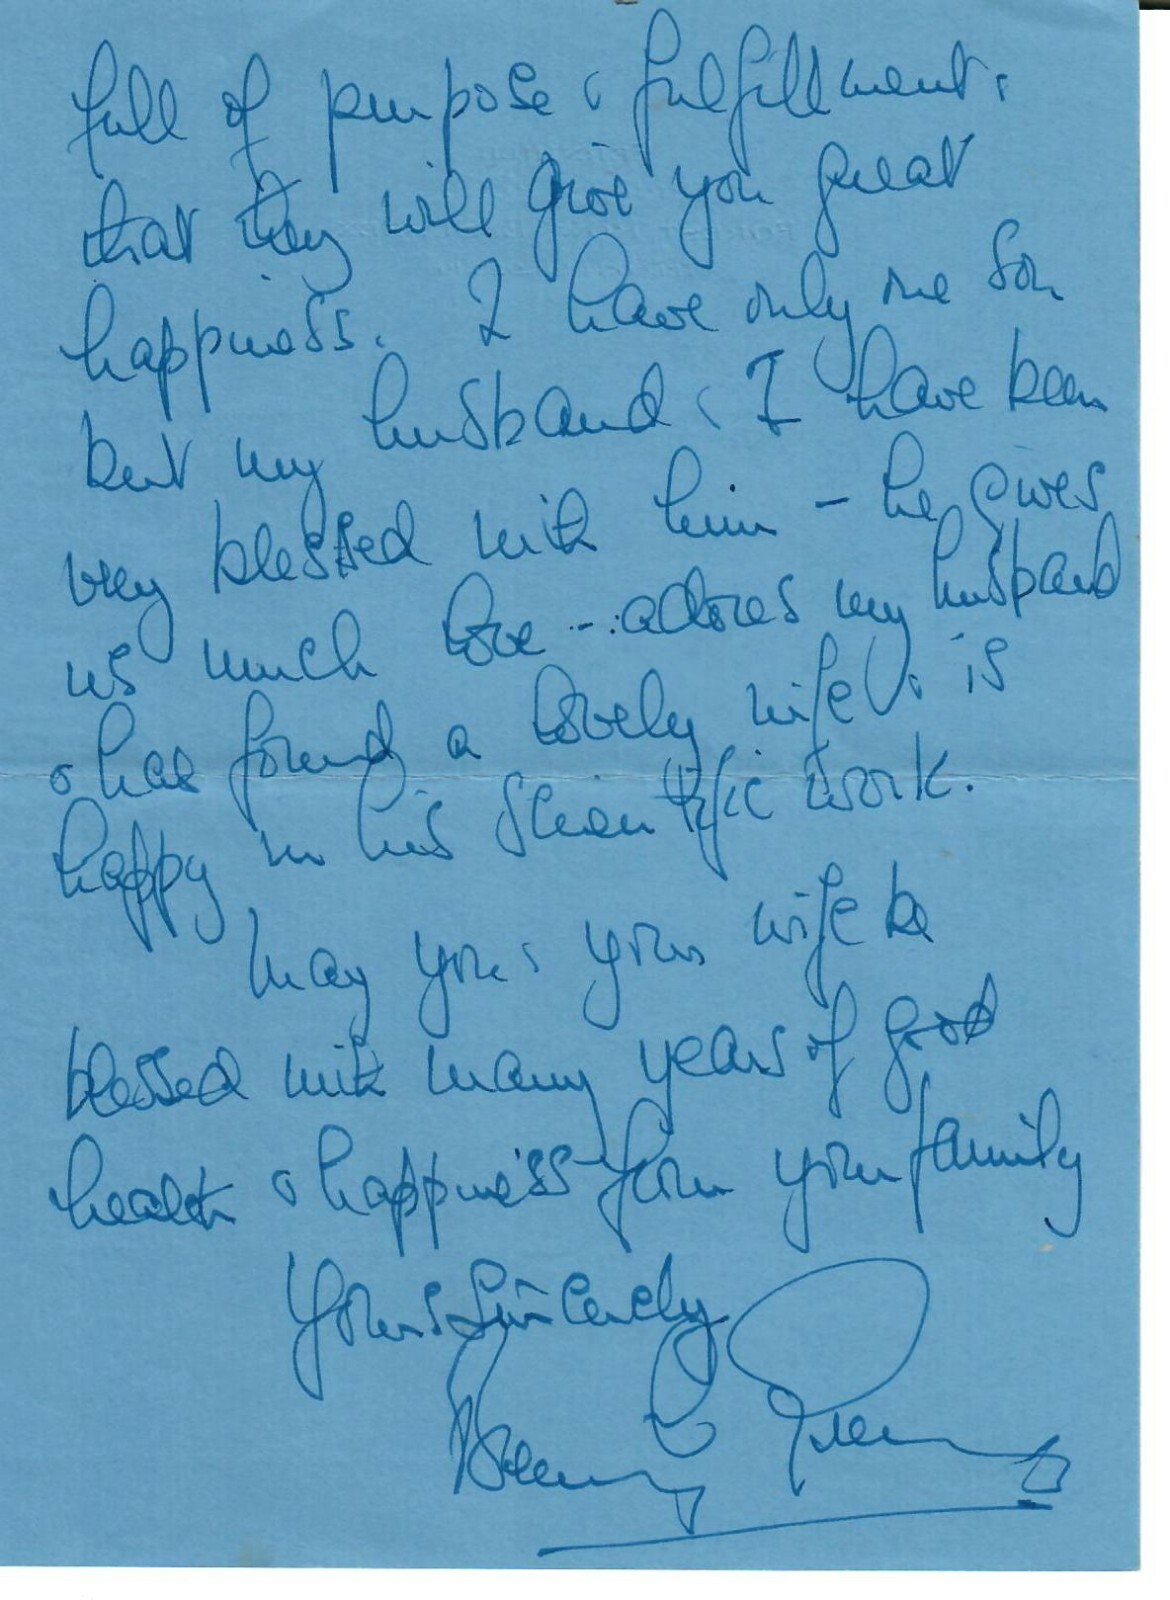 full of purpose & fulfillment &
that they will give you great
happiness. I have only one son
but my husband & I have been
very blessed with him – he gives
us much love – adores my husband
& has found a lovely wife & is
happy in his scientific work.
May you & your wife be
blessed with many years of good
health & happiness from your family
Yours Sincerely